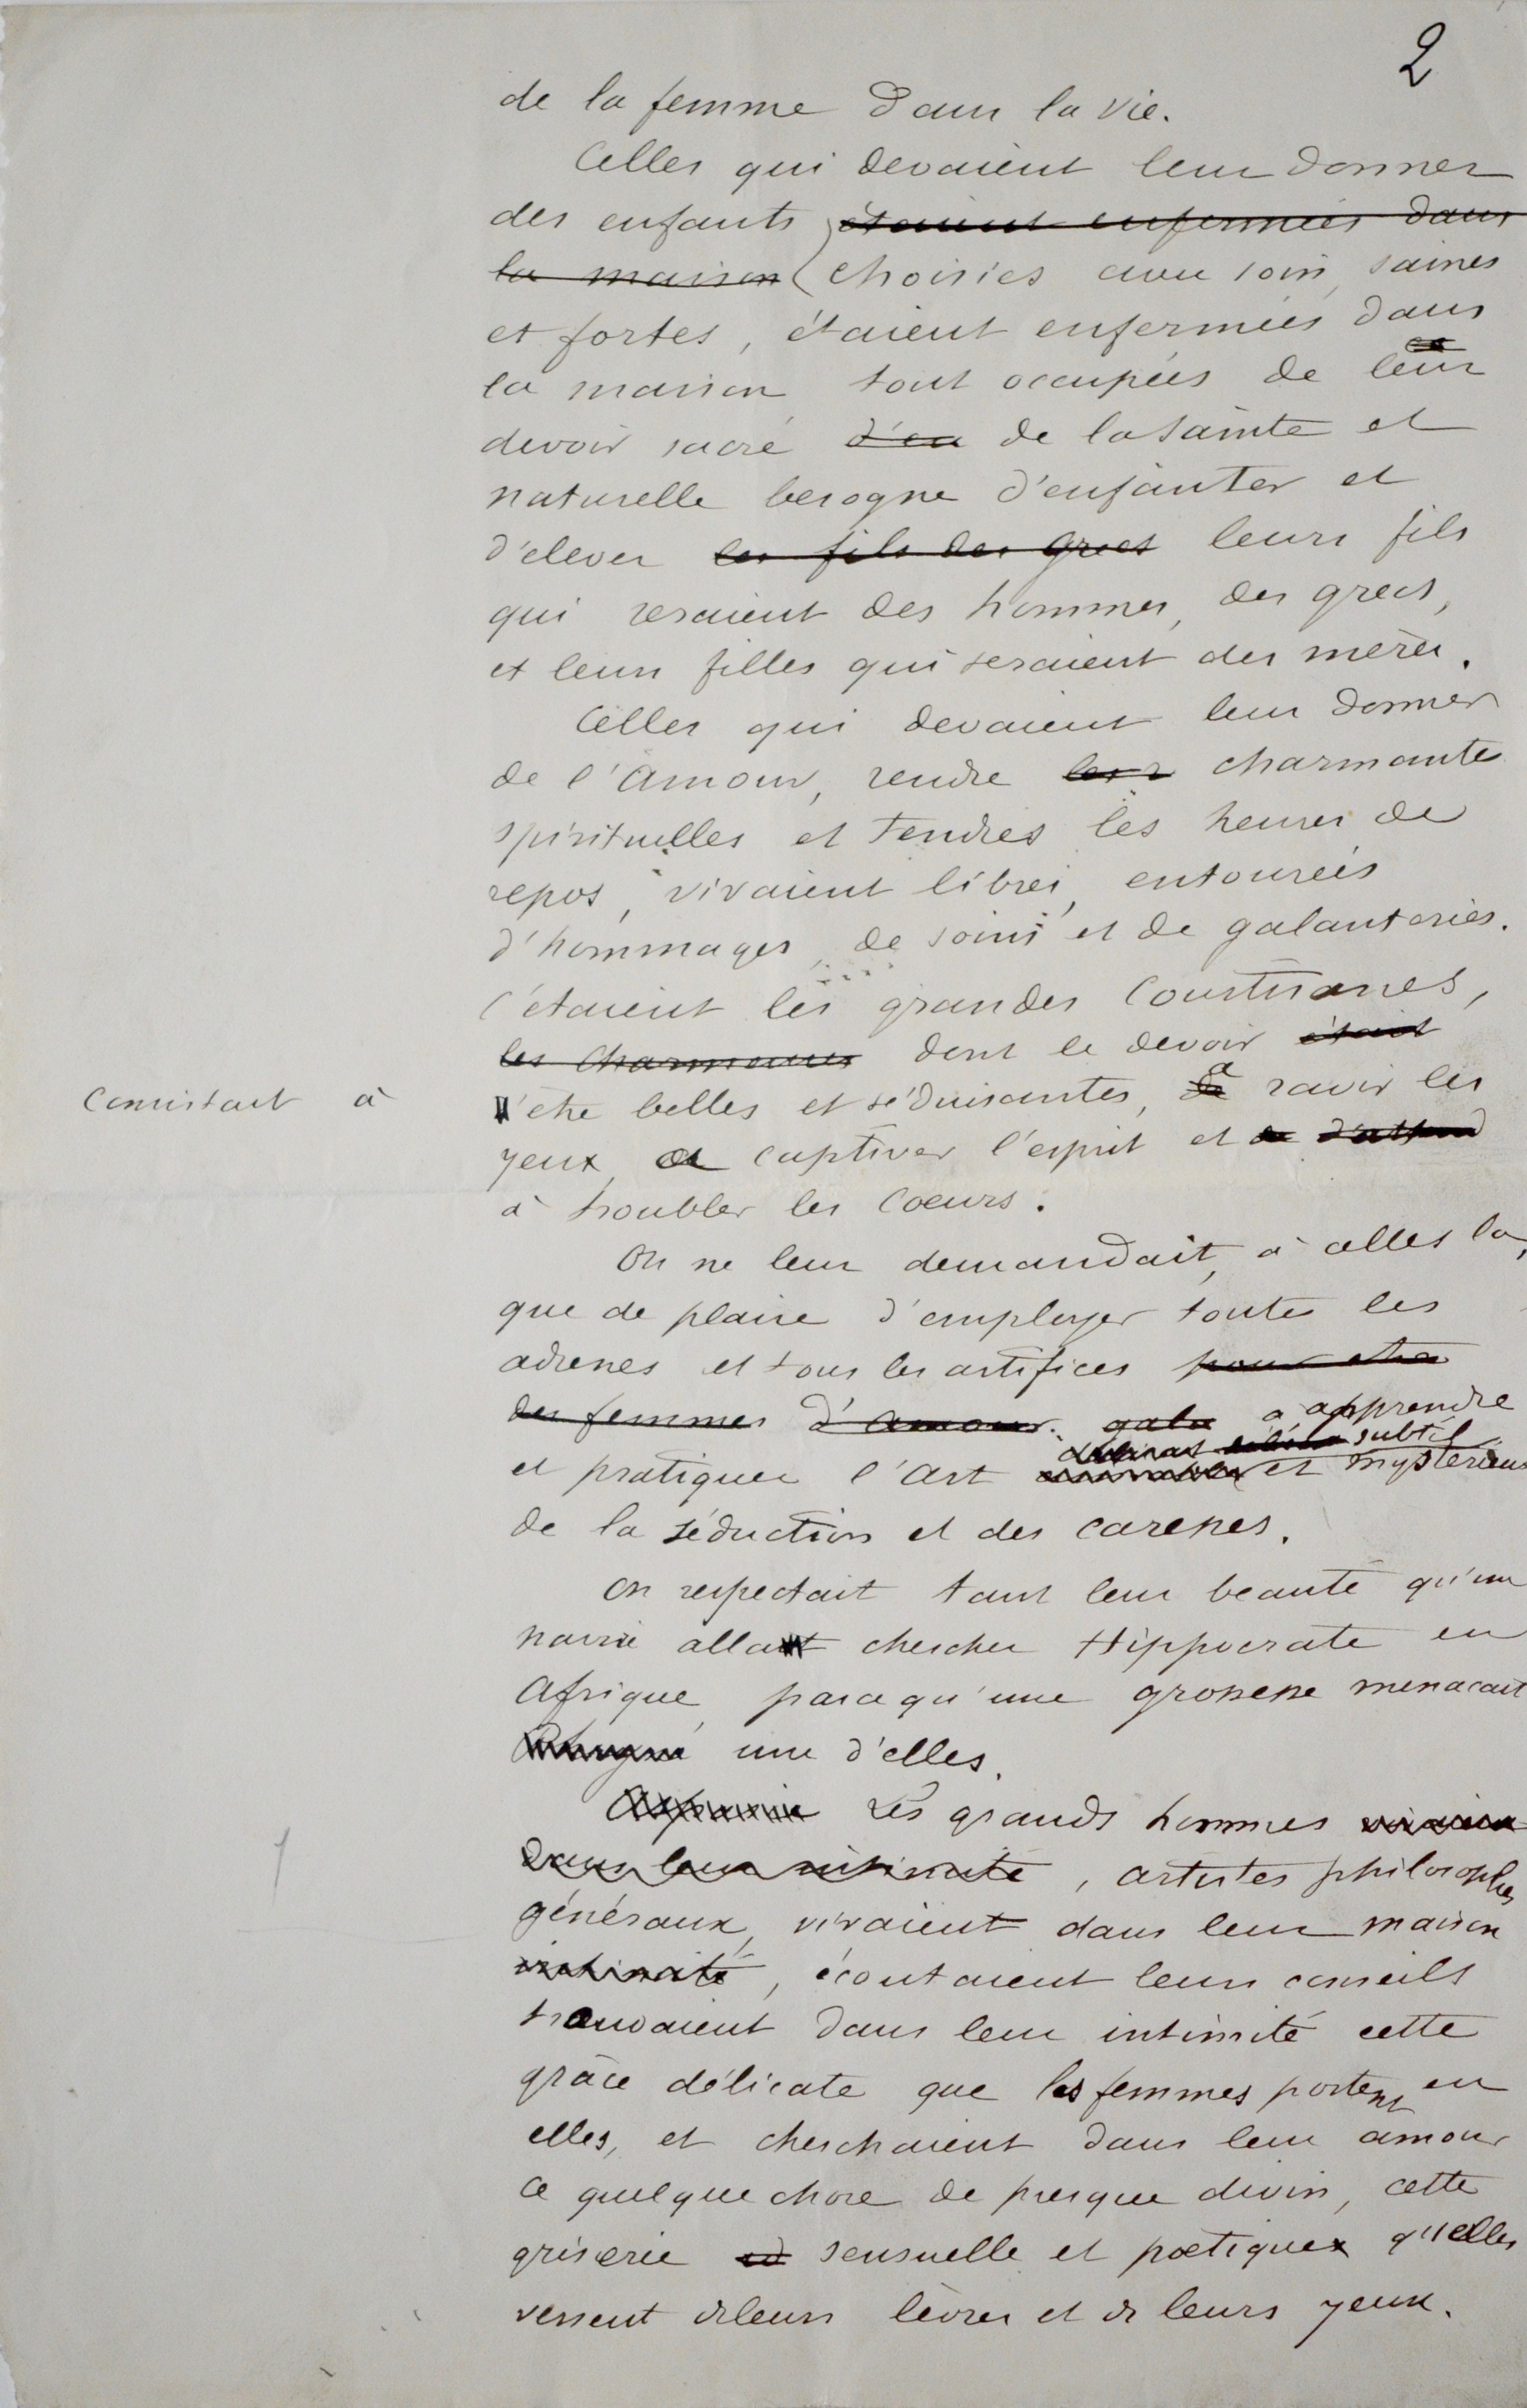 2
de la femme dans la vie.
Celles qui devaient leur donner
des enfants, étaient enfermées dans
la maison choisies avec soin, saines
et fortes, étaient enfermées dans
la maison tout occupées de leur
devoir sacré de la sainte et
naturelle besogne d'enfanter et
d'elever les fils des grecs leurs fils
qui seraient des hommes, des grecs,
et leurs filles qui seraient des mères.
Celles qui devaient leur donner
de l'amour, rendre charmantes
spirituelles et tendres les heures de
repos, vivaient libres, entourées
d'hommages, de soins et de galanteries.
C'étaient les grandes Courtisanes,
les charmeuses dont le devoir était
Consistait à
d'être belles et séduisantes, à ravir les
yeux, à captiver l'esprit et
à troubler les Coeurs.
On ne leur demandait, à celles là,
que de plaire d'employer toutes les
adresses et tous les artifices pour être
des femmes d'amour. gala à apprendre
délicat subtil
et pratiquer l'art et mysterieux
de la séduction et des caresses.
On respectait tant leur beauté qu'un
navire allait chercher Hippocrate en
Afrique, parce qu'une grossesse menacait
une d'elles.
Aspasie Les grands hommes vivaient
dans leur intimité, artistes philosophes
généraux, vivaient dans leur maison
intimité, écoutaient leurs conseils
trouvaient dans leur intimité cette
grâce délicate que les femmes portent en
elles, et cherchaient dans leur amour
ce quelque chose de presque divin, cette
griserie sensuelle et poetique qu'elles
versent de leurs lèvres et de leurs yeux.